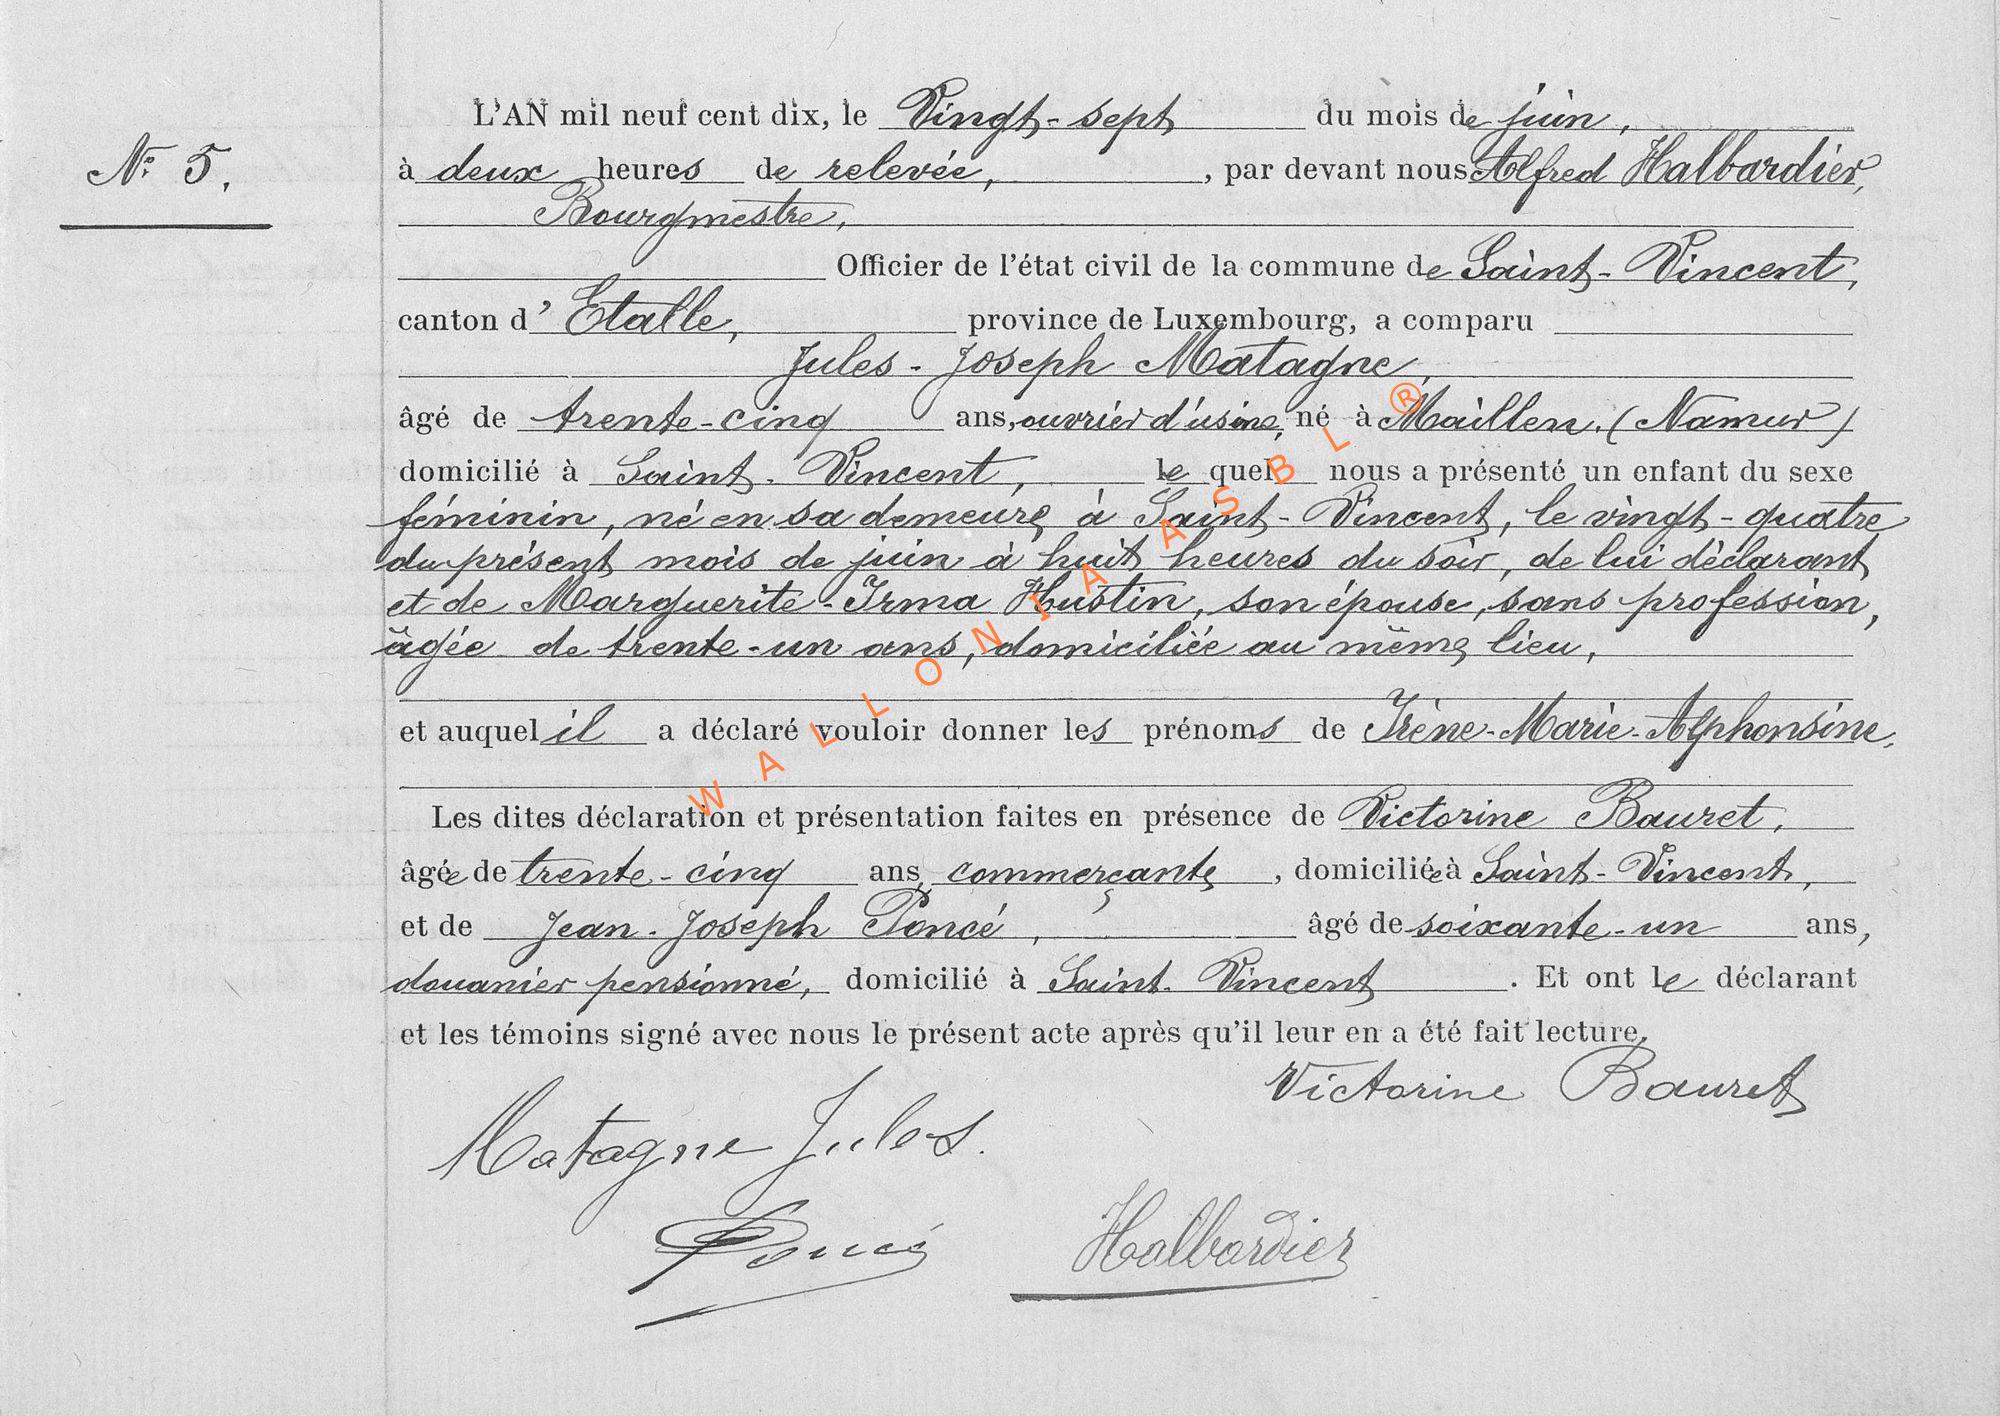 L'AN mil neuf cent dix, le Vingt-sept du mois de juin,
N° 5.
à deux heures de relevée, , par devant nous Alfred Halbardier,
Bourgmestre,
Officier de l'état civil de la commune de Saint-Vincent,
canton d' Etalle, province de Luxembourg, a comparu
Jules-Joseph Matagne,
âgé de trente-cinq ans, ouvrier d'usine, né à Maillen. (Namur)
domicilié à Saint-Vincent, le quel nous a présenté un enfant du sexe
féminin, né en sa demeure à Saint-Vincent, le vingt-quatre
du présent mois de juin à huit heures du soir, de lui déclarant
et de Marguerite-Irma Hustin, son épouse, sans profession,
âgée de trente-un ans, domiciliée au même lieu,
et auquel il a déclaré vouloir donner les prénoms de Irène-Marie-Alphonsine,
Les dites déclaration et présentation faites en présence de Victorine Bauret,
âgée de trente-cinq ans, commerçante, domiciliée à Saint-Vincent,
et de Jean-Joseph Poncé, âgé de soixante-un ans,
douanier pensionné, domicilié à Saint-Vincent. Et ont le déclarant
et les témoins signé avec nous le présent acte après qu'il leur en a été fait lecture.
Victorine Bauret
Matagne Jules.
Poncé
Halbardier
WALLONIA ASBL ®